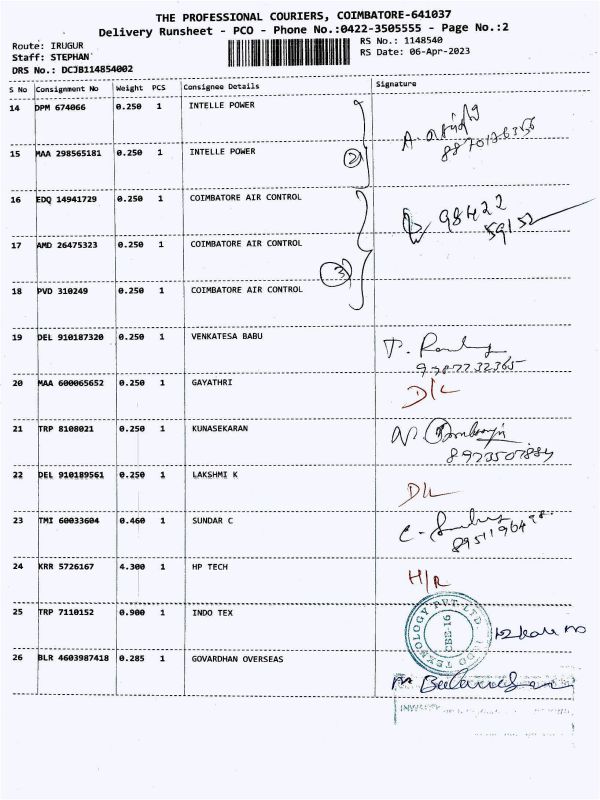 THE PROFESSIONAL COURIERS, COIMBATORE-641037
Delivery Runsheet - PCO - Phone No.:0422-3505555 - Page No.:2
Route: IRUGUR
Staff: STEPHAN
DRS No.: DCJB114854002
RS No.: 1148540
RS Date: 06-Apr-2023
S No Consignment No Weight PCS Consignee Details Signature
14 DPM 674066 0.250 1 INTELLE POWER
8870126356
15 MAA 298565181 0.250 1 INTELLE POWER
2
16 EDQ 14941729 0.250 1 COIMBATORE AIR CONTROL
98422
59152
17 AMD 26475323 0.250 1 COIMBATORE AIR CONTROL
3
18 PVD 310249 0.250 1 COIMBATORE AIR CONTROL
19 DEL 910187320 0.250 1 VENKATESA BABU
20 MAA 600065652 0.250 1 GAYATHRI D/L
21 TRP 8108021 0.250 1 KUNASEKARAN
22 DEL 910189561 0.250 1 LAKSHMI K D/L
23 TMI 60033604 0.460 1 SUNDAR C
24 KRR 5726167 4.300 1 HP TECH H/R
25 TRP 7110152 0.900 1 INDO TEX
CBE-16
26 BLR 4603987418 0.285 1 GOVARDHAN OVERSEAS